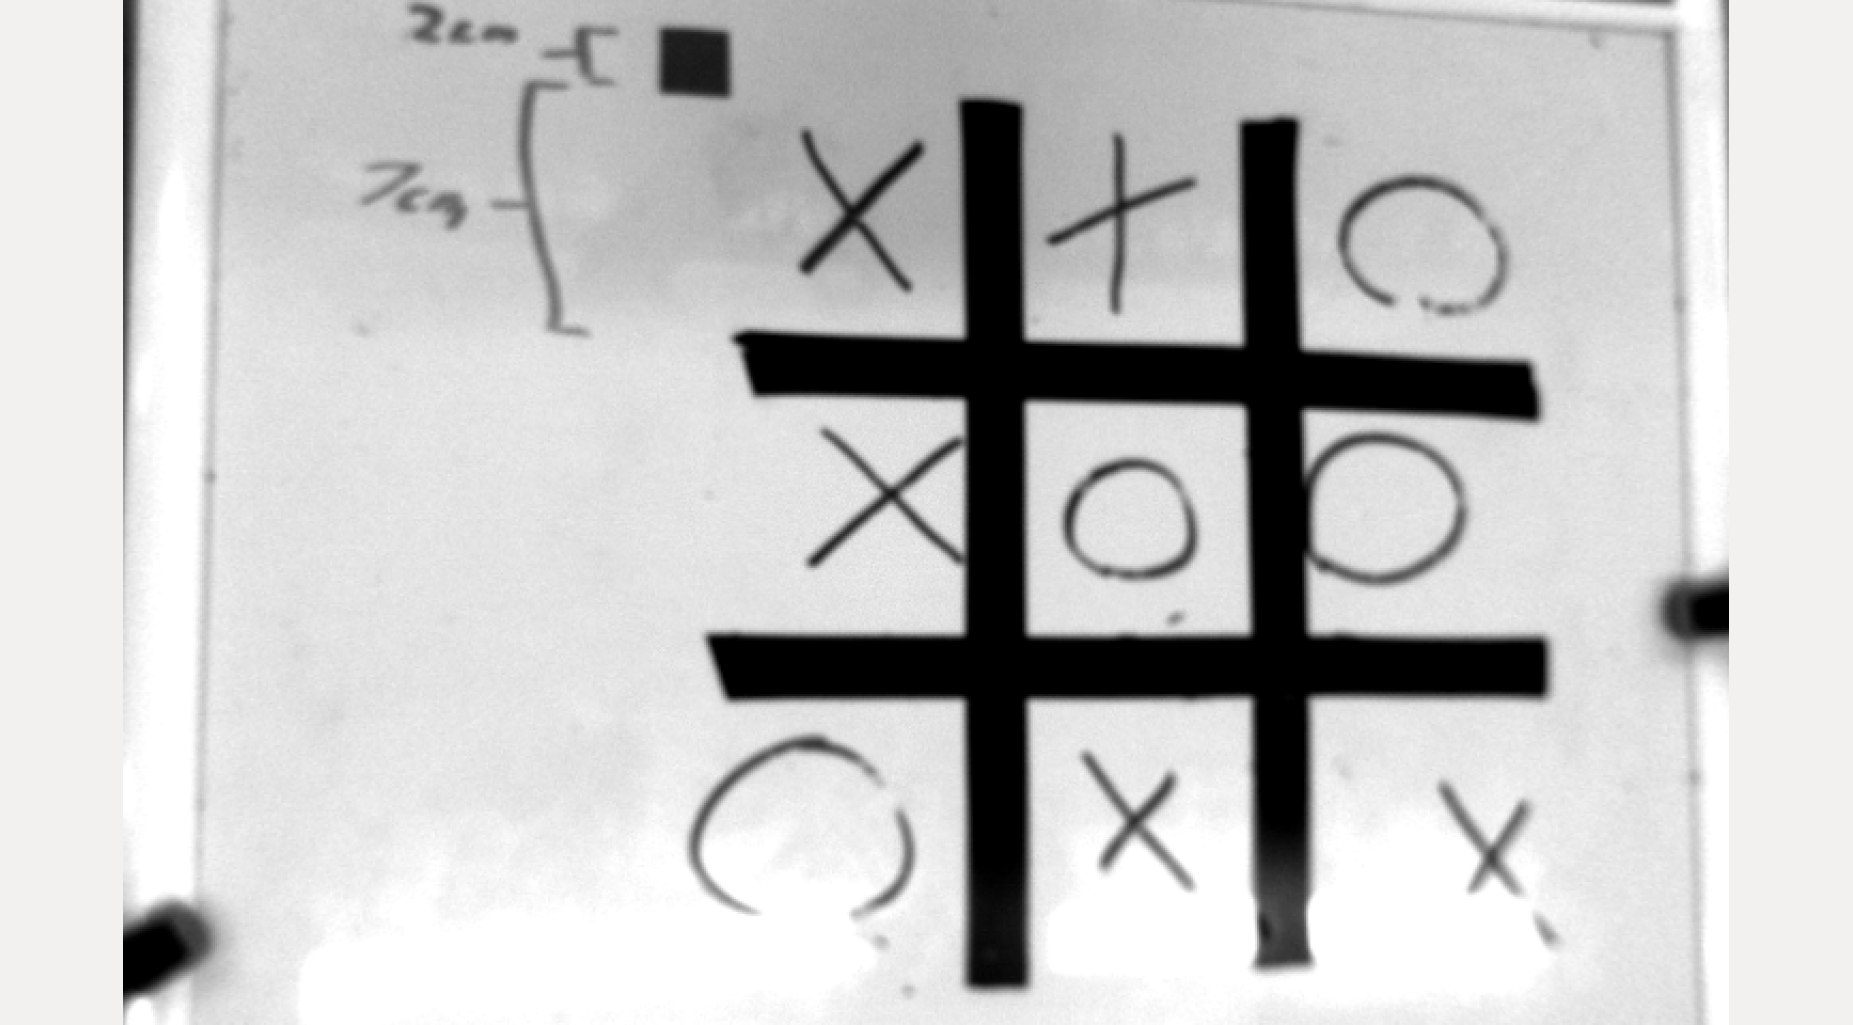 2cm
7cm
X X O
X O O
O X X